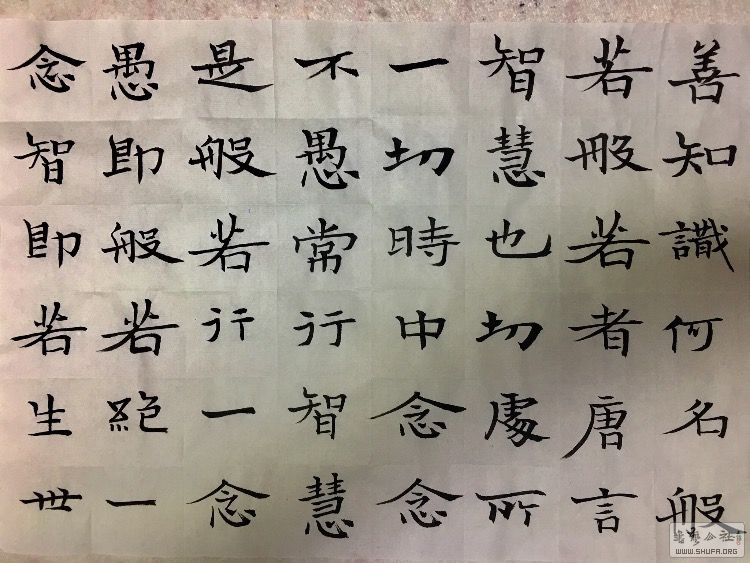 善知識何名般
若般若者唐言
智慧也切處所
一切時中念念
不愚常行智慧
是般若行一念
愚即般若絕一
念智即若生世
书艺公社
WWW.SHUFA.ORG